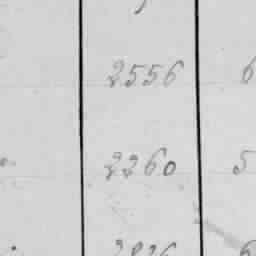 2556 6
2260 5